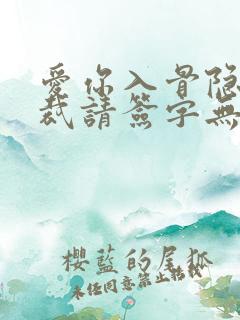 愛你入骨隐
裁請簽字無
櫻藍的尾狐
未经同意禁止转载